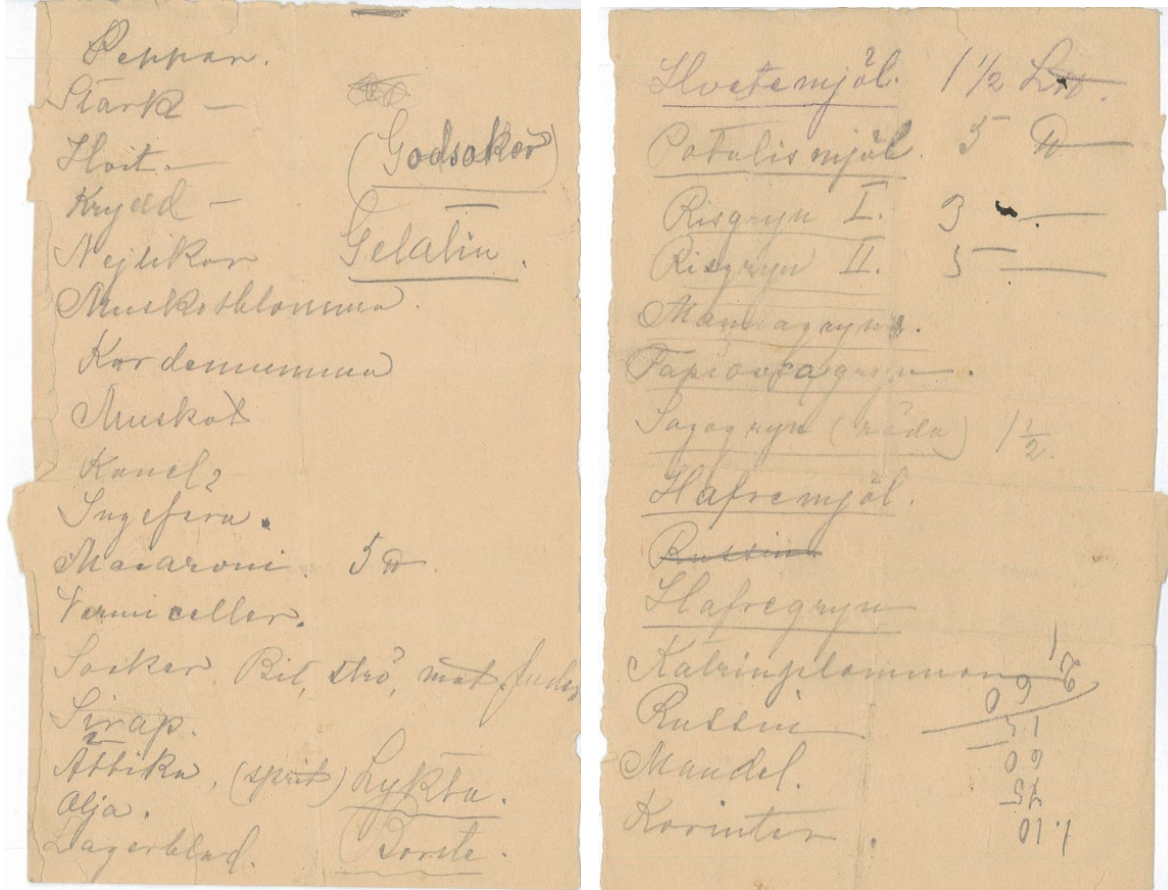 Peppar.
Stark —
Hvit. —
Krydd —
Nejlikor
Muskotblomma.
Kardemumma
Muskot
Kanel?
Ingefära.
Macaroni. 5 ℔.
Vermiceller.
Socker. Bit, strö, mat,
Sirap.
Ättika, (sprit)
Olja.
Lagerblad.
(Godsaker)
Gelatin.
Lykta.
Borste.
Hvetemjöl. 1 1/2 L℔.
Potatismjöl. 5 ℔ —
Risgryn I. 3 —
Risgryn II. 5 —
Mannagryn.
Tapiocagryn.
Sagogryn (röda) 1 1/2.
Hafremjöl.
Russin
Hafregryn
Katrinplommon
Russin.
Mandel.
Korinter.
1.10
75
60